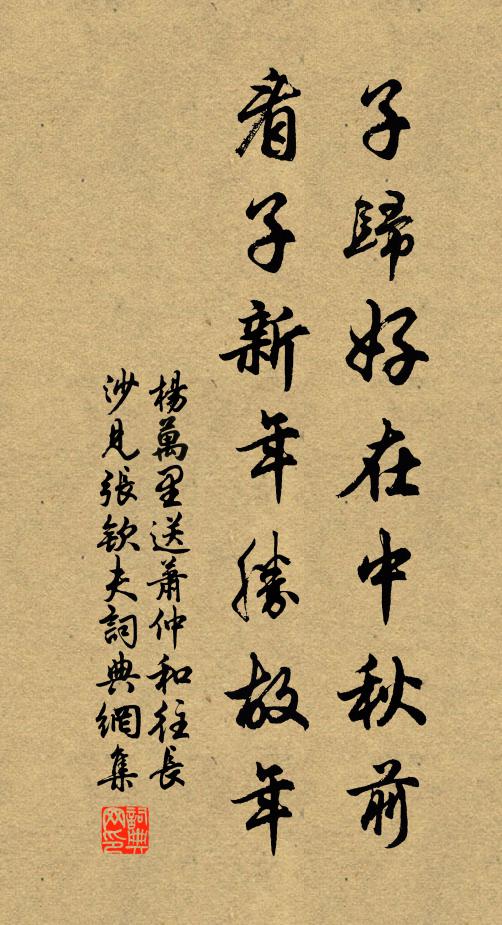 子歸好在中秋前
看子新年勝故年
楊萬里送蕭仲和往長
沙見張欽夫詞典網集
詞典
网印